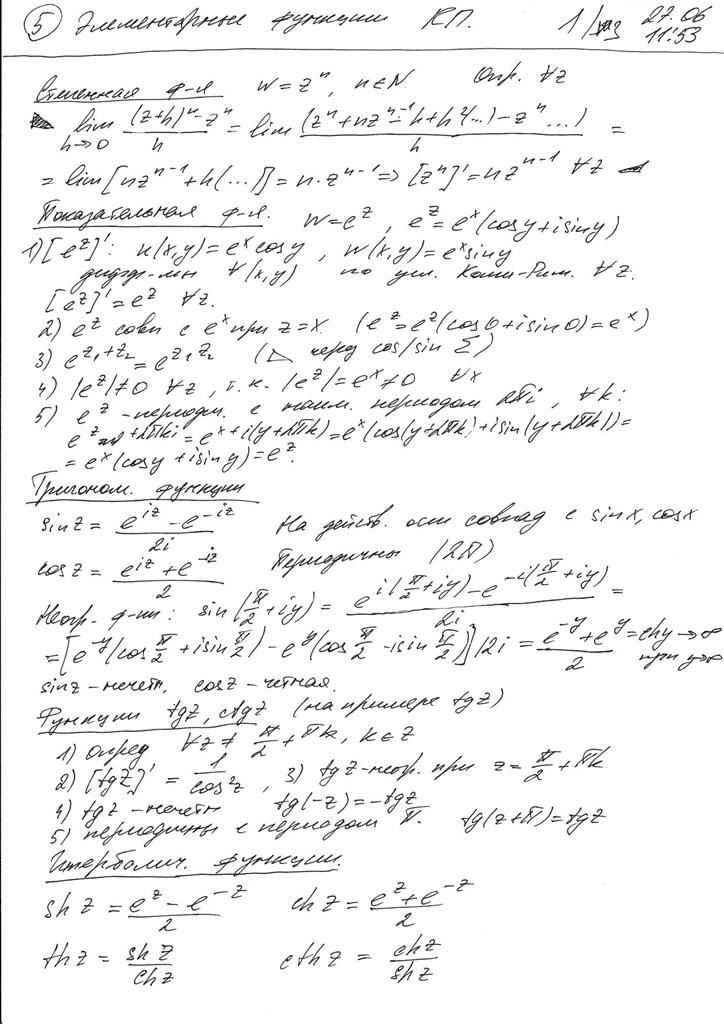 5 Элементарные функции К.П. 1/ 27.06
11:53
Степенная ф-я w = zⁿ, n∈N. Опр. ∀z
lim h→0 ((z+h)ⁿ - zⁿ)/h = lim (zⁿ + nzⁿ⁻¹h + h²(...) - zⁿ ...)/h =
= lim[nzⁿ⁻¹ + h(...)] = n·zⁿ⁻¹ => [zⁿ]' = nzⁿ⁻¹ ∀z
Показательная ф-я. w = e^z, e^z = e^x(cosy + isiny)
1) [e^z]': u(x,y) = e^x cosy, w(x,y) = e^x siny
дифф-мы ∀(x,y) по усл. Коши-Рим. ∀z.
[e^z]' = e^z ∀z.
2) e^z совп с e^x при z=x (e^z = e^z(cos0 + isin0) = e^x)
3) e^(z₁+z₂) = e^(z₁z₂) (через cos/sin Σ)
4) |e^z| ≠ 0 ∀z, т.к. |e^z| = e^x ≠ 0 ∀x
5) e^z - периодич. с наим. периодом 2πi, ∀k:
e^(z+2πki) = e^(x+i(y+2πk)) = e^x(cos(y+2πk) + isin(y+2πk)) =
= e^x(cosy + isiny) = e^z.
Тригоном. функции
sinz = (e^(iz) - e^(-iz))/2i На действ. оси совпад с sinx, cosx
cosz = (e^(iz) + e^(-iz))/2 Периодичны (2π)
Неогр. ф-ии: sin(π/2 + iy) = (e^(i(π/2+iy)) - e^(-i(π/2+iy)))/2i =
= [e^(-y)(cos π/2 + isin π/2) - e^y(cos π/2 - isin π/2)]/2i = (e^(-y) + e^y)/2 = chy → ∞
при y→∞
sinz - нечетн, cosz - четная.
Функции tgz, ctgz (на примере tgz)
1) опред ∀z ≠ π/2 + πk, k∈Z
2) [tgz]' = 1/cos²z, 3) tgz - неогр. при z = π/2 + πk
4) tgz - нечетн tg(-z) = -tgz
5) периодичны с периодом π. tg(z+π) = tgz
Гиперболич. функции.
sh z = (e^z - e^(-z))/2 ch z = (e^z + e^(-z))/2
th z = sh z/ch z cth z = ch z/sh z